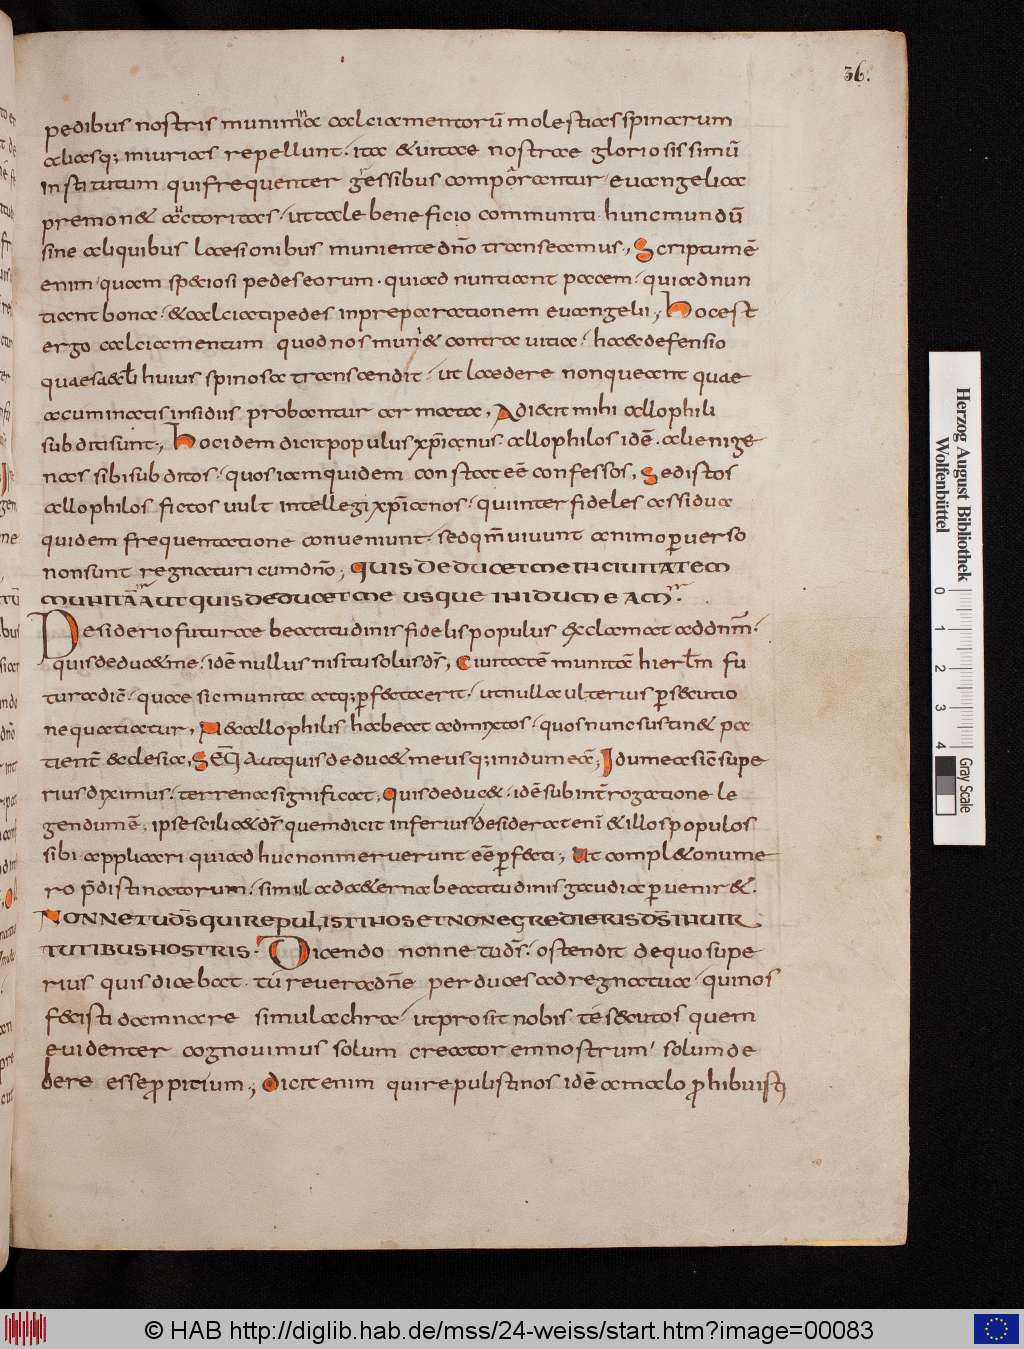 36.
pedibus nostris munimīna calciamentorū molestias spinarum
aliasq; iniurias repellunt · ita & uitae nostrae gloriosissimū
institutum qui frequenter gressibus comparantur euangelicae
premon& auctoritas · ut tale beneficio communiti · hunc mundū
sine aliquibus laesionibus muniente dn̄o transeamus, Scriptum ē
enim · quam speciosi pedes eorum · qui adnuntiant pacem · qui adnun
tiant bona · & calciati pedes in preparationem euangelii, hoc est
ergo calciamentum quod nos munit & contra uitia · haec & defensio
quae saecl̄i huius spinosa transcendit · ut laedere nonqueant quae
acuminatis insidiis probantur armata, Adiecit mihi allophili
subditi sunt, hoc idem dicit populus xp̄ianus allophilos idē alienige
nas sibi subditos · quos iamquidem constat eē confessos, Sed istos
allophilos fictos uult intellegi xp̄ianos · qui inter fideles assidua
quidem frequentatione conueniunt · sed qm̄ uiuunt animo peruerso
non sunt regnaturi cum dn̄o, QUIS DEDUCET ME IN CIUITATEM
MUNITAM AUT QUIS DEDUCET ME USQUE IN IDUMEAM
Desiderio futurae beatitudinis fidelis populus exclamat ad dn̄m ·
quis deduc& me · idē nullus nisi tu solus dr̄, Ciuitatē munitā hierl̄m fu
tura diē · quae sic munita atq; perfecta erit · ut nulla ulterius persecutio
ne quatiatur, Nec allophilis habeat admixtos · quos nunc sustin& pa
tient ecclesia, SEQ Aut quis deduc& me usq; in idumeā, Idumea siē supe
rius diximus · terrena significat, Quis deduc& · idē sub interrogatione le
gendum ē, ipse scilic& dr̄ quem dicit inferius desiderat enī & illos populos
sibi applicari qui adhuc non meruerunt eē perfecti, Ut compl& onume
ro p̄distinatorum · simul ad aeterna beatitudinis gaudia peruenir& ·
NONNE TU DS̄ QUI REPULISTI NOS ET NON EGREDIERIS DS̄ IN UIR
TUTIBUS NOSTRIS · Dicendo nonne tu dr̄ · ostendit de quo supe
rius quis dicebat · tu reuera dn̄e perducas ad regna tua · qui nos
fecisti damnare simulachra · ut prosit nobis te secutos quem
euidenter cognouimus solum creatorem nostrum solum de
bere esse propitium, Dicit enim qui repulisti nos idē a malo prohibuisti
Herzog August Bibliothek
Wolfenbüttel
0 1 2 3 4
Gray Scale
© HAB http://diglib.hab.de/mss/24-weiss/start.htm?image=00083